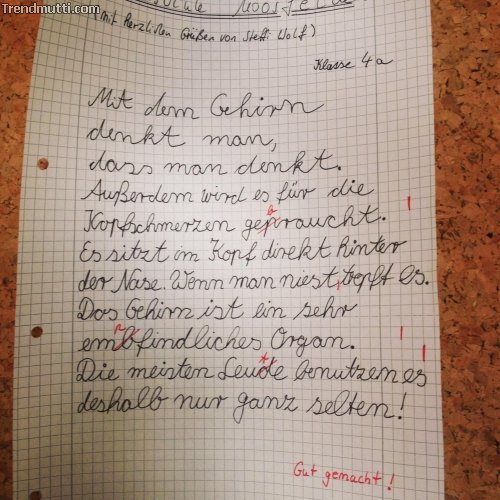 Trendmutti.com
(mit herzlichen Grüßen von Steffi Wolf)
Klasse 4a
Mit dem Gehirn
denkt man,
dass man denkt.
Außerdem wird es für die
Kopfschmerzen gepraucht.
Es sitzt im Kopf direkt hinter
der Nase. Wenn man niest tropft es.
Das Gehirn ist ein sehr
embfindliches Organ.
Die meisten Leude benutzen es
deshalb nur ganz selten!
Gut gemacht!